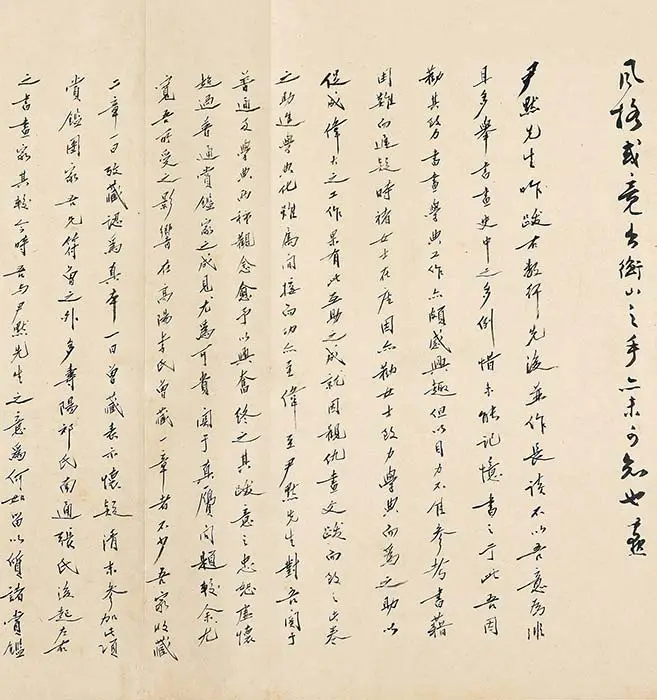 风格或竟出衡山之手亦未可知也
尹默先生昨跋右数行先后并作长谈不以吾意为非
且多举书画史中之多例惜未能记忆书之于此吾因
劝其致力书画学典工作亦颇感兴趣但以目力不佳参考书籍
困难而迟疑时褚女士在座因亦劝女士致力学典而为之助以
促成伟大之工作果有此互助之成就因观仇画文跋而致之此卷
之助进学典化虽属间接而功亦至伟至尹默先生对吾关于
普通及学典两种观念愈予以兴奋终之其跋意之忠恕虚怀
超过普通赏鉴家之成见尤为可贵关于真赝问题较余尤
宽吾所受之影响在高阳李氏曾藏一章者不少吾家收藏
二章一曰致藏认为真本一曰曾藏表示怀疑清末参加此项
赏鉴团家吾兄符曾之外多寿阳祁氏南通张氏后起
之书画家其较今时吾与尹默先生之意为何如留以质诸赏鉴